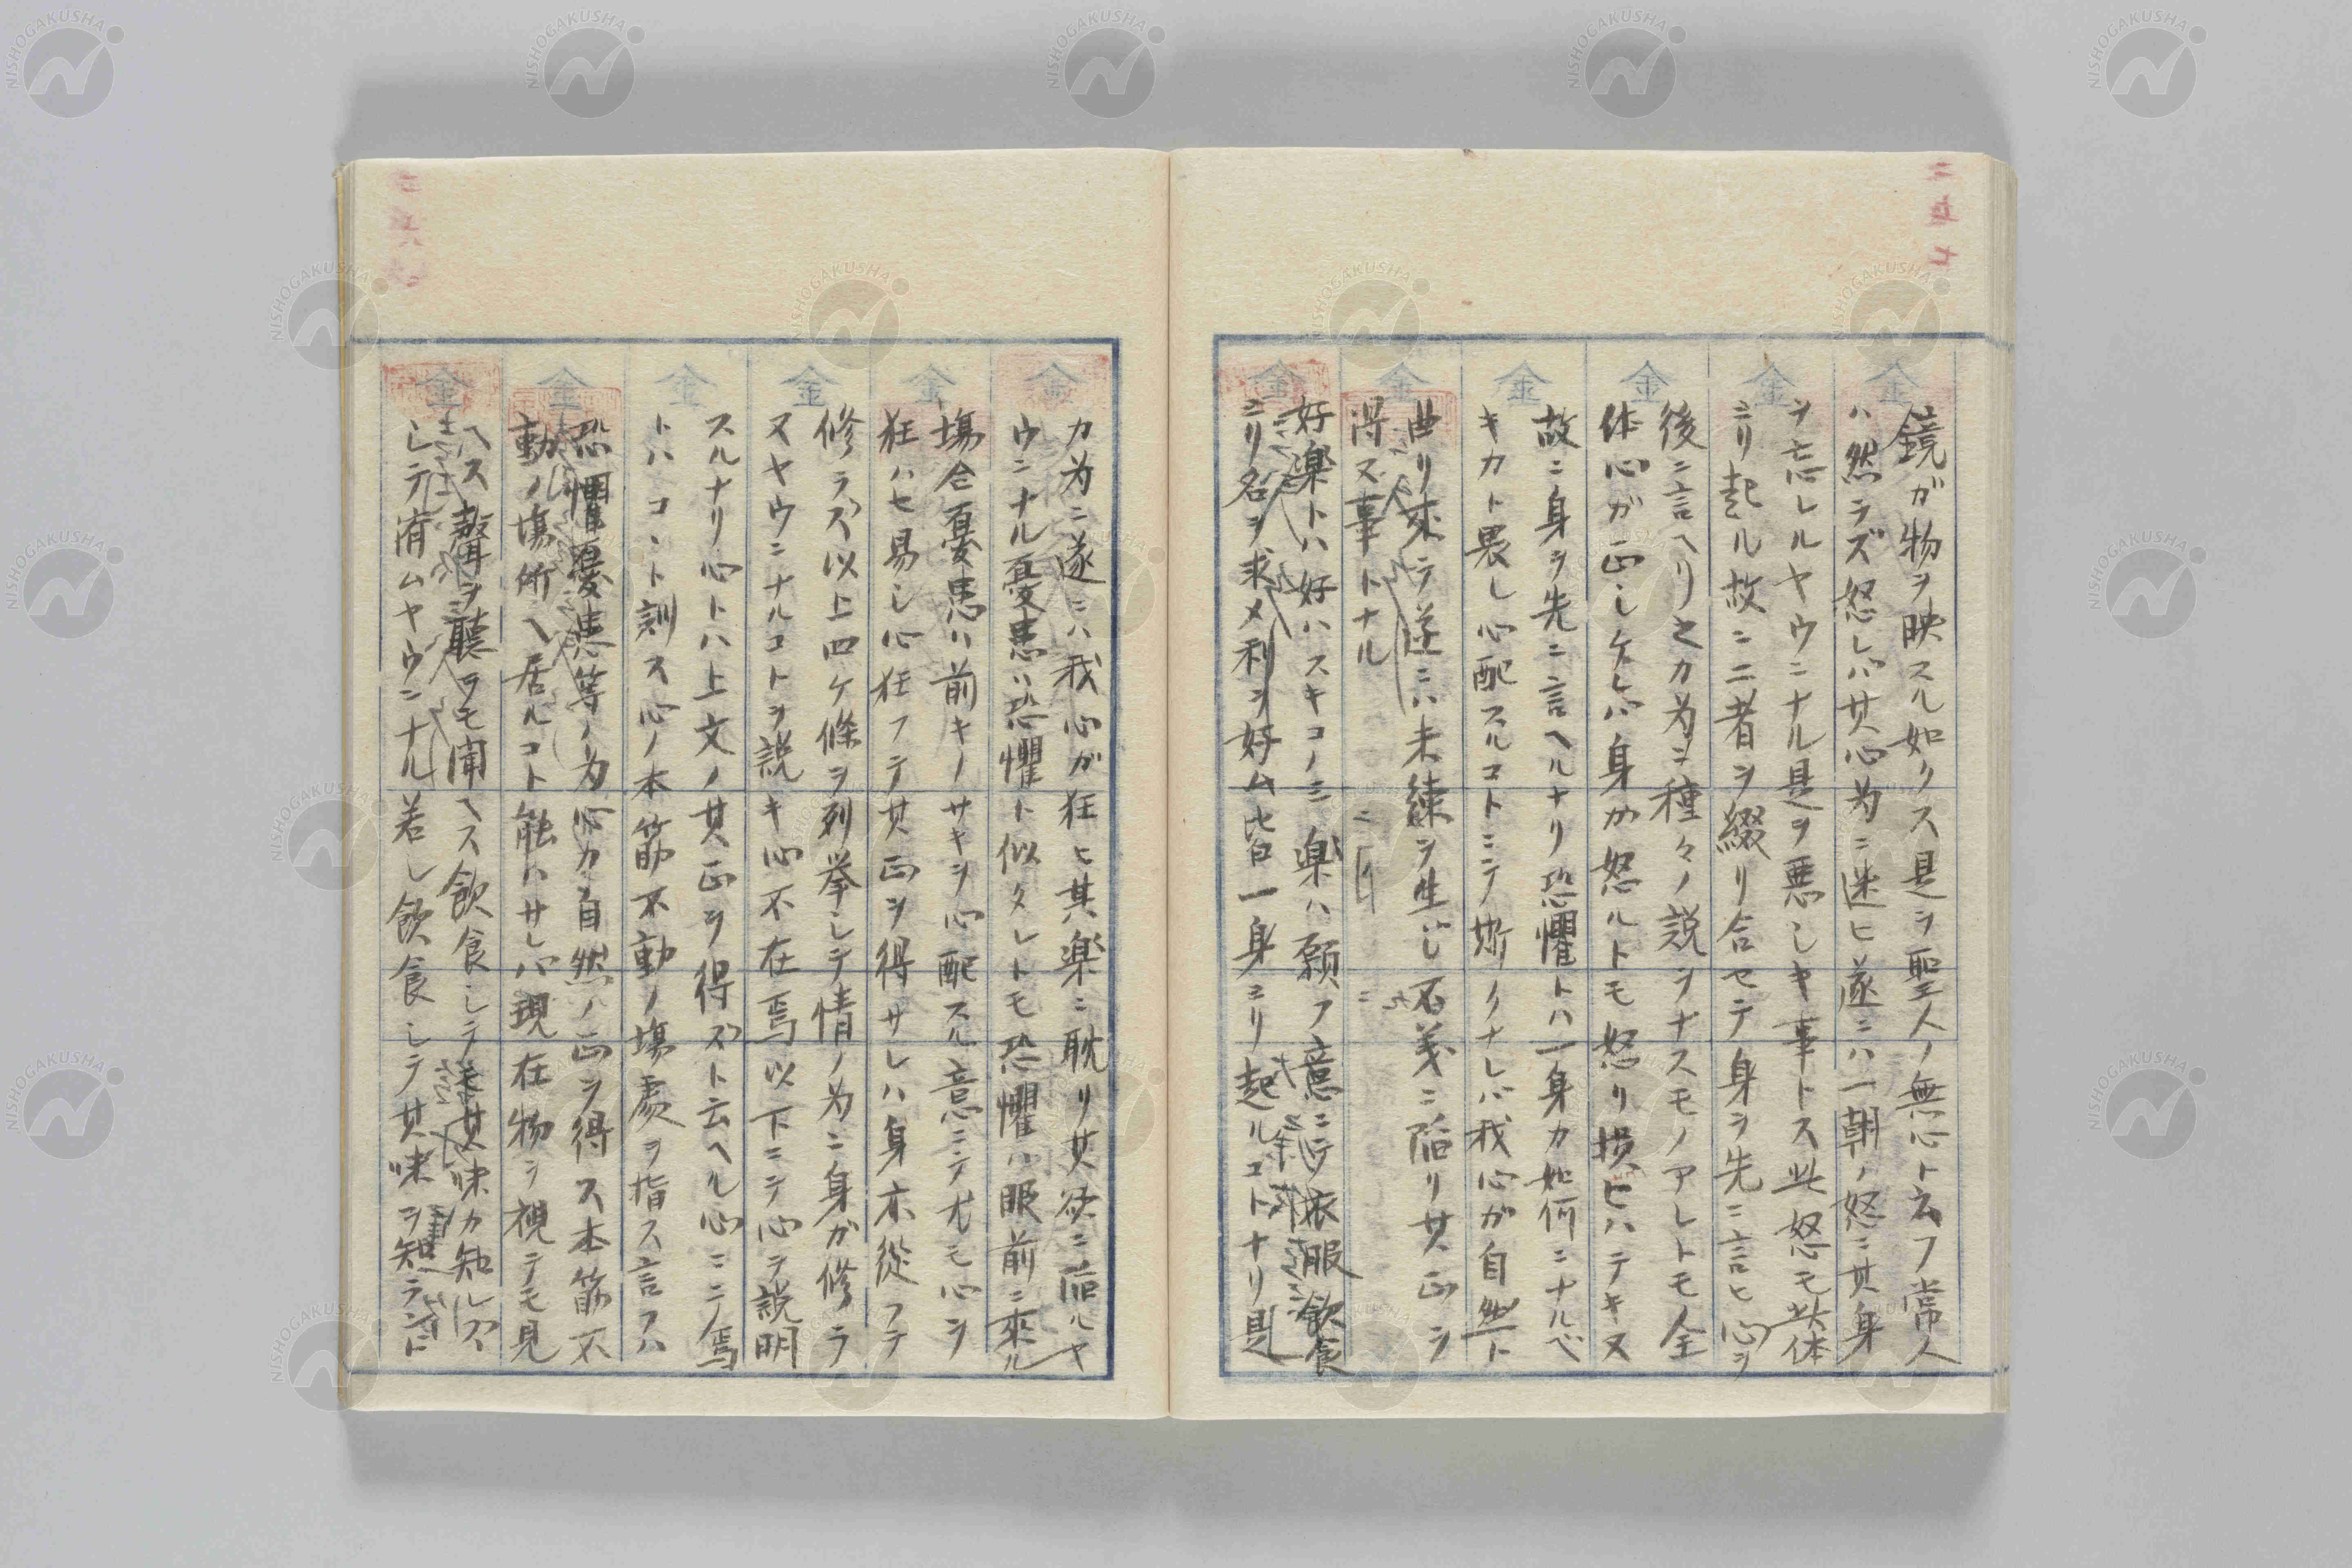 鏡ガ物ヲ映スル如クス是ヲ聖人ノ無心ト云フ常人
ハ然ラズ怒レバ其心為ニ迷ヒ遂ニハ一朝ノ怒ニ其身
ヲ忘レルヤウニナル是ヲ悪シキ事トス此怒モ其体
ヨリ起ル故ニ二者ヲ綴リ合セテ身ヲ先ニ言ヒ心ヲ
後ニ言ヘリ之カ為ニ種々ノ説ヲナスモノアレトモ全
体心ガ正シケレバ身カ怒ルトモ怒リ損ヒハテキヌ
故ニ身ヲ先ニ言ヘルナリ恐懼トハ一身カ如何ニナルベ
キカト畏レ心配スルコトニテ斯クナレバ我心ガ自然ト
曲リ来テ遂ニハ未練ヲ生シ不義ニ陥リ其正ヲ
得ヌ事トナル
好楽トハ好ハスキコノミ楽ハ願フ意ニテ衣服飲食
ヨリ名ヲ求メ利ヲ好ム皆一身ヨリ起ルコトナリ是
カ為ニ遂ニハ我心ガ狂ヒ其楽ニ耽リ其欲ニ陥ルヤ
ウニナル憂患ハ恐懼ト似タレトモ恐懼ハ眼前ニ来ル
場合憂患ハ前キノサキヲ心配スル意ニテ尤モ心ヲ
狂ハセ易シ心狂フテ其正ヲ得サレハ身亦従フテ
修ラズ以上四ケ條ヲ列挙シテ情ノ為ニ身ガ修ラ
ヌヤウニナルコトヲ説キ心不在焉以下ニテ心ヲ説明
スルナリ心トハ上文ノ其正ヲ得ズト云ヘル心ニテ焉
トハコヽト訓ス心ノ本筋不動ノ場處ヲ指ス言フハ
恐懼憂患等ノ為心カ自然ノ正ヲ得ス本筋不
動ノ場所ヘ居ルコト能ハサレバ現在物ヲ視テモ見
ヘス聲ヲ聴ヲモ聞ヘス飲食シテ其味カ知レズ
シテ済ムヤウニナル若シ飲食シテ其味ヲ知ラント